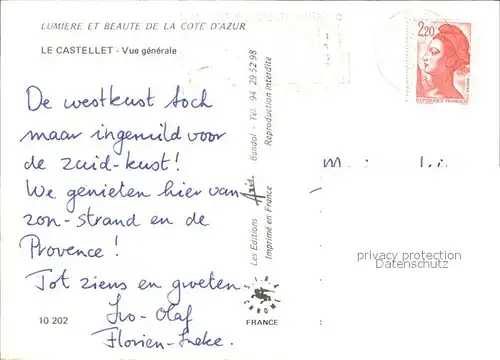 LUMIERE ET BEAUTE DE LA COTE D'AZUR
LE CASTELLET - Vue générale
De westkust toch
maar ingeruild voor
de zuid-kust!
We genieten hier van
zon-strand en de
Provence!
Tot ziens en groeten
Ivo-Olaf
Florien-Ineke.
10 202
Les Editions
Bandol - Tél. 94 29 52 98
Imprimé en France
Reproduction interdite
FRANCE
2,20
privacy protection
Datenschutz